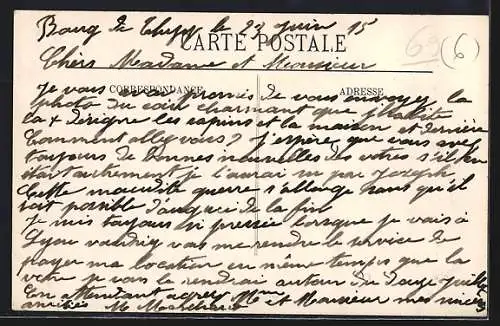 Bourg de Thizy le 23 Juin 15
CARTE POSTALE
69 (6)
Chers Madame et Monsieur
CORRESPONDANCE
ADRESSE
Je vous avais promis de vous envoyer la
photo du coin charmant que j'habite
la + désigne les sapins et la maison est derrière
Comment allez vous? J'espère que vous avez
toujours de bonnes nouvelles des votres s'il en
était autrement je l'aurai su par Joseph
Cette maudite guerre s'allonge sans qu'il
soit possible d'augurer de la fin
Je suis toujours si pressée lorsque je vais à
Lyon voudriez vous me rendre le service de
payer ma location en même temps que la
votre je vous le rendrai autour du douze juillet
En attendant agréez Mme et Monsieur mes sincères
amitiés M